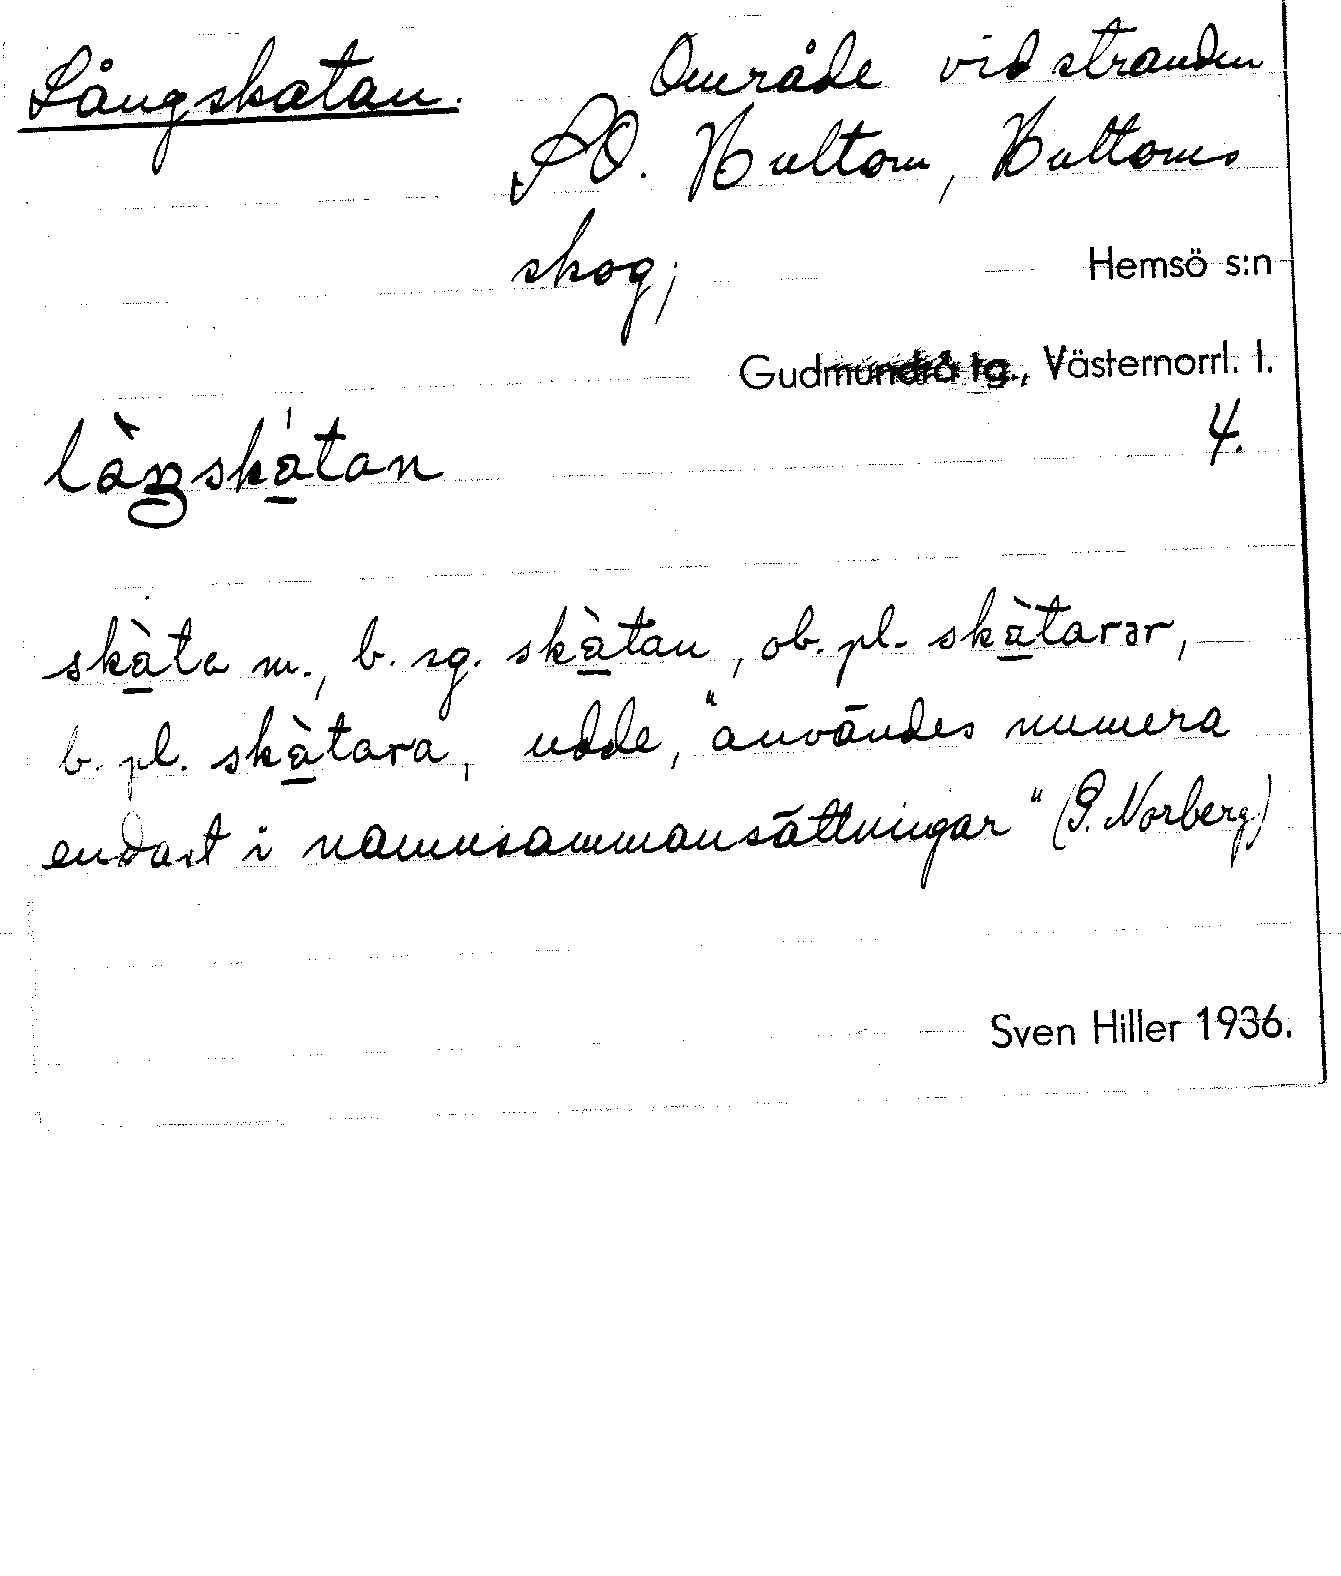 Långskatan. Område vid stranden
SO. Hultom, Hultoms
skog; Hemsö s:n
Gudmundrå tg., Västernorrl. l.
låŋskàtan 4.
skàta m., b. sg. skàtan, ob. pl. skàtarər,
b. pl. skàtara, udde, "användes numera
endast i namnsammansättningar" (P. Norberg)
Sven Hiller 1936.